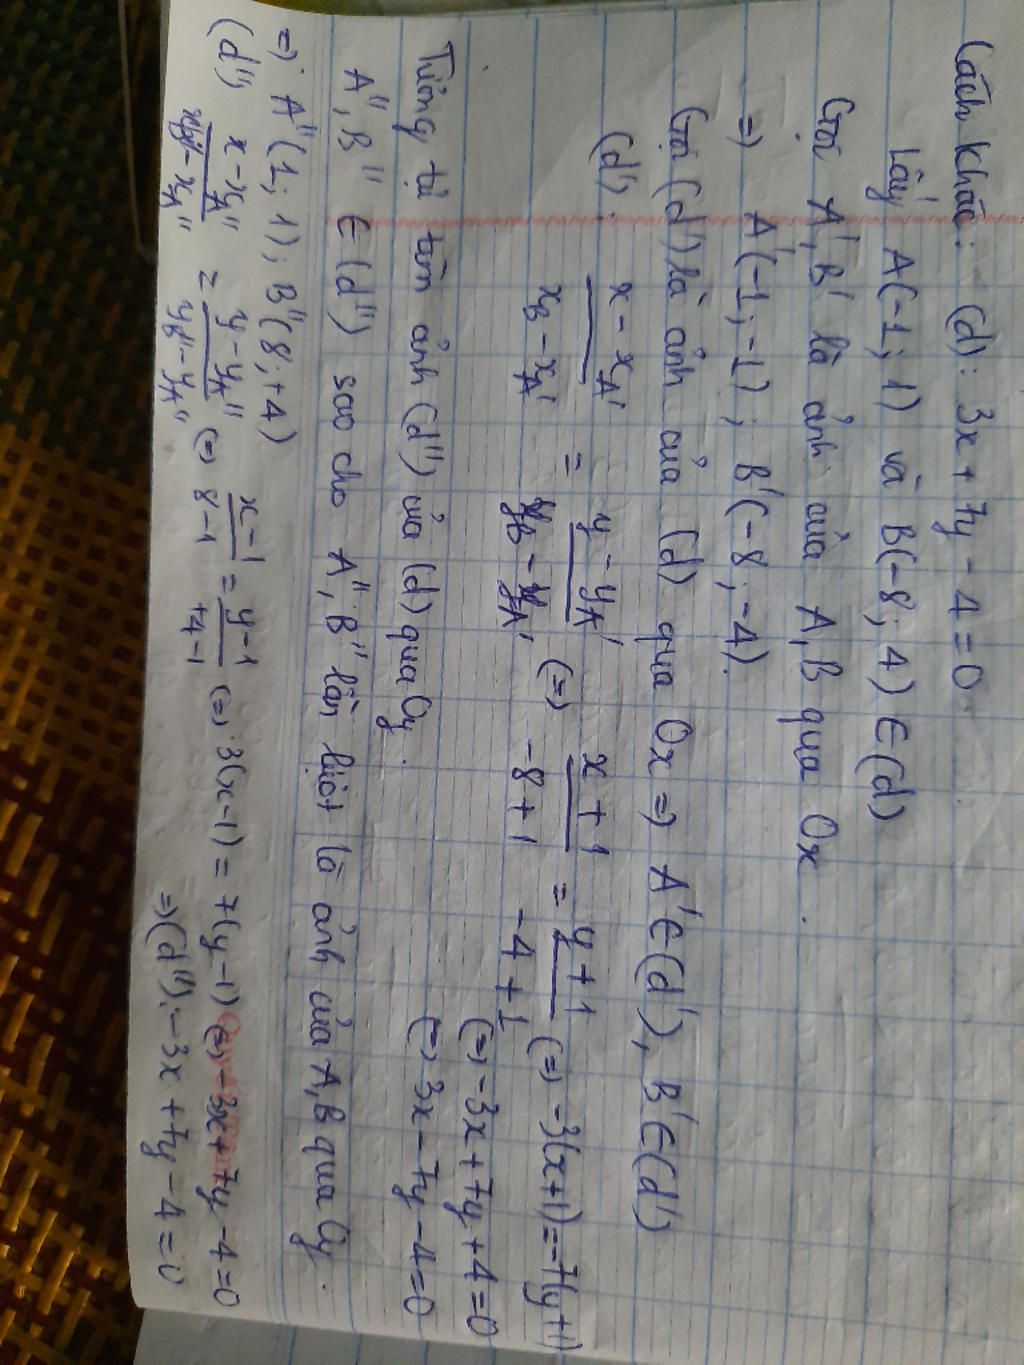 Cách khác: (d): 3x + 7y - 4 = 0.
Lấy A(-1; 1) và B(-8; 4) ∈ (d)
Gọi A', B' là ảnh của A, B qua Ox.
=> A'(-1; -1); B'(-8; -4).
Gọi (d') là ảnh của (d) qua Ox => A' ∈ (d'), B' ∈ (d')
(d'): (x - xA')/(xB' - xA') = (y - yA')/(yB' - yA') (=) (x + 1)/(-8 + 1) = (y + 1)/(-4 + 1) (=) -3(x+1) = -7(y+1)
(=) -3x + 7y + 4 = 0
(=) 3x - 7y - 4 = 0
Tương tự tìm ảnh (d'') của (d) qua Oy.
A'', B'' ∈ (d'') sao cho A'', B'' lần lượt là ảnh của A, B qua Oy.
=> A''(1; 1); B''(8; +4)
(d''): (x - xA'')/(xB'' - xA'') = (y - yA'')/(yB'' - yA'') (=) (x - 1)/(8 - 1) = (y - 1)/(+4 - 1) (=) 3(x - 1) = 7(y - 1) (=) -3x + 7y - 4 = 0
=> (d''): -3x + 7y - 4 = 0